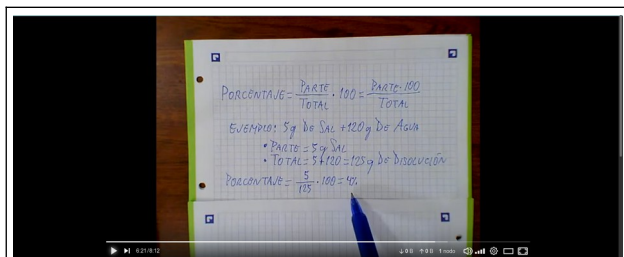 PORCENTAJE = PARTE / TOTAL · 100 = PARTE · 100 / TOTAL
EJEMPLO: 5g DE SAL + 120g DE AGUA
• PARTE = 5g SAL
• TOTAL = 5+120 = 125g DE DISOLUCIÓN
PORCENTAJE = 5 / 125 · 100 = 4%
6:21/8:12
↓0 B ↑0 B 1 nodo